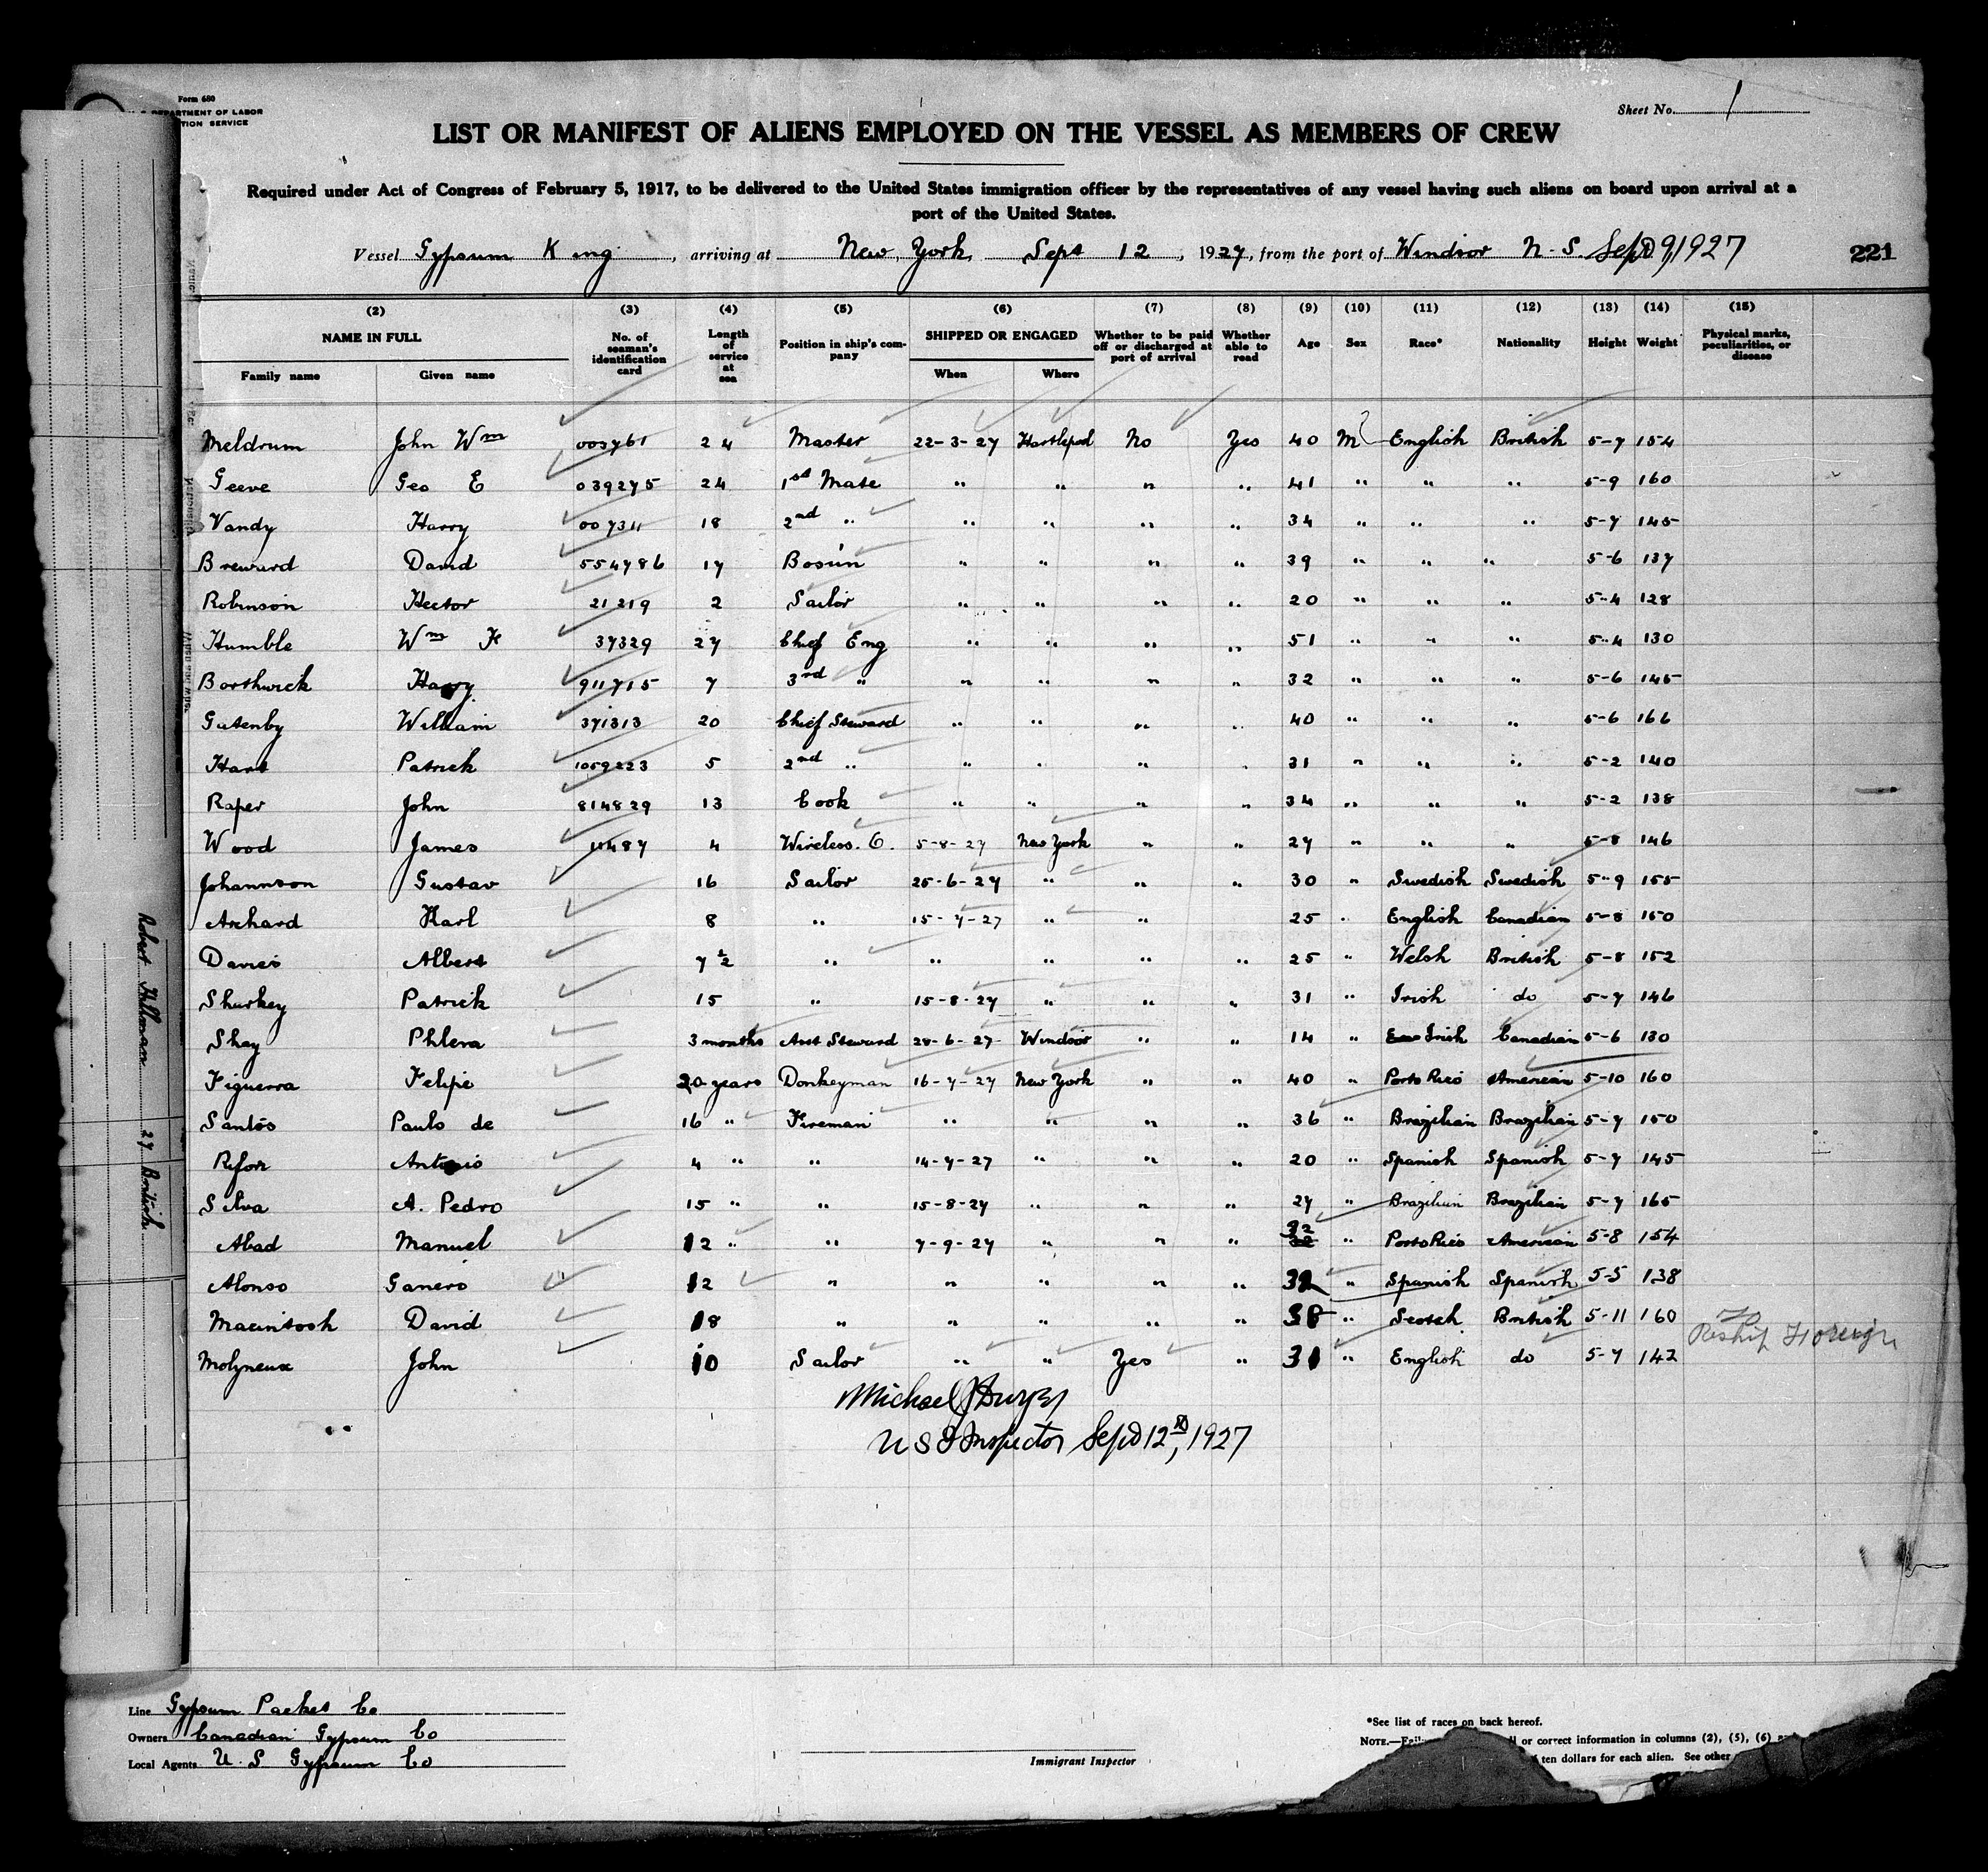 Form 680
DEPARTMENT OF LABOR
TION SERVICE
Sheet No. 1
LIST OR MANIFEST OF ALIENS EMPLOYED ON THE VESSEL AS MEMBERS OF CREW
Required under Act of Congress of February 5, 1917, to be delivered to the United States immigration officer by the representatives of any vessel having such aliens on board upon arrival at a
port of the United States.
Vessel Gypsum King, arriving at New York, Sept 12, 1927, from the port of Windsor N.S. Sept 9, 1927
221
(2) (3) (4) (5) (6) (7) (8) (9) (10) (11) (12) (13) (14) (15)
NAME IN FULL No. of seaman's identification card Length of service at sea Position in ship's company SHIPPED OR ENGAGED Whether to be paid off or discharged at port of arrival Whether able to read Age Sex Race* Nationality Height Weight Physical marks, peculiarities, or disease
Family name Given name When Where
Meldrum John Wm 003761 24 Master 22-3-27 Hartlepool No Yes 40 M English British 5-7 154
Geeve Geo E 039275 24 1st Mate " " " " 41 " " " 5-9 160
Vandy Harry 007311 18 2nd " " " " " 34 " " " 5-7 145
Breward David 554786 17 Bosun " " " " 39 " " " 5-6 137
Robinson Hector 21219 2 Sailor " " " " 20 " " " 5-4 128
Humble Wm H 37329 27 Chief Eng " " " " 51 " " " 5-4 130
Borthwick Harry 911715 7 3rd " " " " " 32 " " " 5-6 145
Gatenby William 371313 20 Chief Steward " " " " 40 " " " 5-6 166
Hart Patrick 1059223 5 2nd " " " " " 31 " " " 5-2 140
Raper John 814829 13 Cook " " " " 34 " " " 5-2 138
Wood James 11487 4 Wireless. O. 5-8-27 New York " " 27 " " " 5-8 146
Johannson Gustav 16 Sailor 25-6-27 " " " 30 " Swedish Swedish 5-9 155
Archard Karl 8 " 15-7-27 " " 25 " English Canadian 5-8 150
Davies Albert 7½ " " " " " 25 " Welsh British 5-8 152
Shurkey Patrick 15 " 15-8-27 " " " 31 " Irish do 5-7 146
Shay Phlera 3 months Asst Steward 28-6-27 Windsor " " 14 " Irish Canadian 5-6 130
Figuerra Felipe 20 years Donkeyman 16-7-27 New York " " 40 " Porto Rico American 5-10 160
Santos Paulo de 16 " Fireman " " " " 36 " Brazilian Brazilian 5-7 150
Antonio 4 " " 14-7-27 " " " 20 " Spanish Spanish 5-7 145
Silva A. Pedro 15 " " 15-8-27 " " " 27 " Brazilian Brazilian 5-7 165
Abad Manuel 12 " " 7-9-27 " " " 32 " Porto Rico American 5-8 154
Alonso Ganero 12 " " " " " 32 " Spanish Spanish 5-5 138
Macintosh David 18 " " " " " 38 " Scotch British 5-11 160
Molyneux John 10 Sailor " " Yes " 31 " English do 5-7 142 To Reship Foreign
Michael J Dwyer
U S I Inspector Sept 12th, 1927
Robert Hillman 27 British
Line Gypsum Packet Co
Owners Canadian Gypsum Co
Local Agents U. S Gypsum Co
Immigrant Inspector
*See list of races on back hereof.
NOTE.— or correct information in columns (2), (5), (6)
ten dollars for each alien. See other